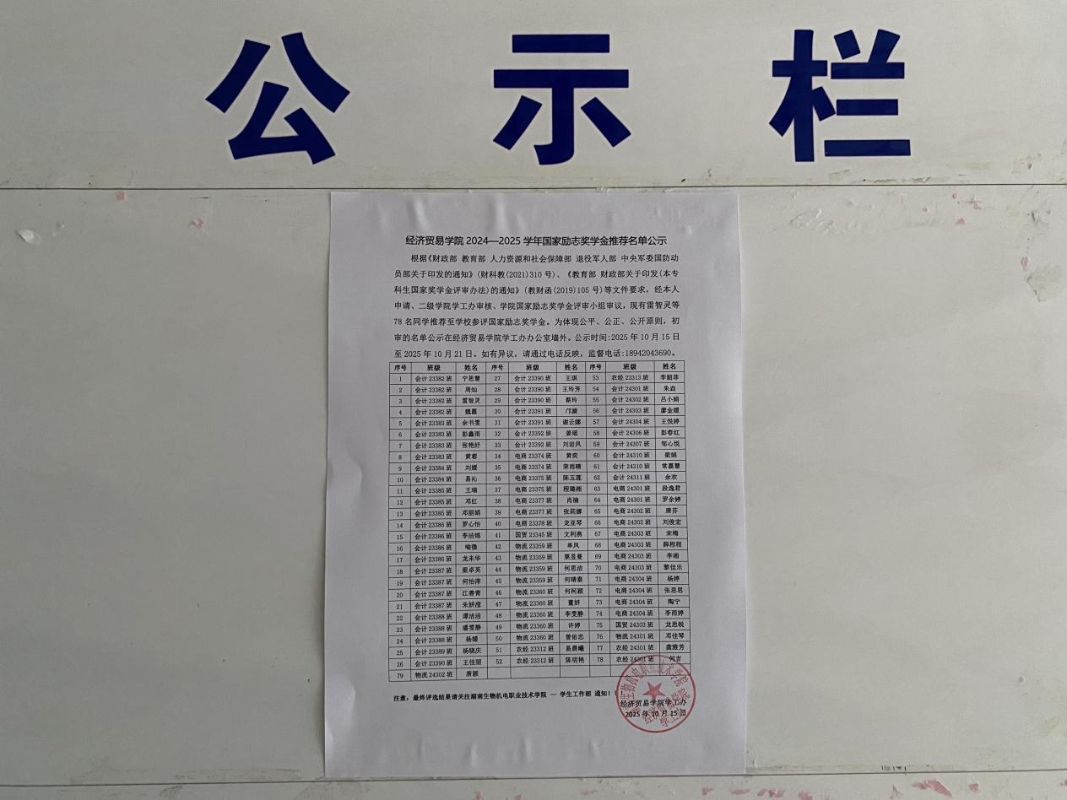 公示栏
经济贸易学院 2024—2025 学年国家励志奖学金推荐名单公示
根据《财政部 教育部 人力资源和社会保障部 退役军人部 中央军委国防动
员部关于印发的通知》(财科教(2021)310 号)、《教育部 财政部关于印发(本专
科生国家奖学金评审办法)的通知》(教财函(2019)105 号)等文件要求，经本人
申请、二级学院学工办审核、学院国家励志奖学金评审小组审议，现有雷智灵等
78 名同学推荐至学校参评国家励志奖学金。为体现公平、公正、公开原则，初
审的名单公示在经济贸易学院学工办办公室墙外。公示时间:2025 年 10 月 15 日
至 2025 年 10 月 21 日。如有异议，请通过电话反映，监督电话:18942043690。
序号 班级 姓名 序号 班级 姓名 序号 班级 姓名
1 会计 23382 班 宁思慧 27 会计 23390 班 王琪 53 农经 23313 班
2 会计 23382 班 周灿 28 会计 23390 班 王玲芳 54 会计 24301 班
3 会计 23382 班 雷智灵 29 会计 23390 班 蔡玲 55 会计 24302 班 吕小娟
4 会计 23382 班 魏嘉 30 会计 23391 班 56 会计 24303 班 廖金媛
5 会计 23383 班 余书雯 31 会计 23391 班 谢云娜 57 会计 24304 班 王悦婷
6 会计 23383 班 彭鑫雨 32 会计 23392 班 姜瑶 58 会计 24306 班 彭春红
7 会计 23383 班 张艳好 33 会计 23392 班 刘岩凤 59 会计 24307 班 邹心悦
8 会计 23383 班 黄蓉 34 电商 23374 班 黄奕 60 会计 24310 班
9 会计 23384 班 刘媛 35 电商 23374 班 荣雨晴 61 会计 24310 班 常嘉慧
10 会计 23384 班 易沁 36 电商 23375 班 陈玉莲 62 会计 24311 班 余欢
11 会计 23385 班 王瑞 37 电商 23375 班 程璐雨 63 电商 24301 班 段逸君
12 会计 23385 班 邓红 38 电商 23377 班 肖楠 64 电商 24301 班 罗余婷
13 会计 23385 班 邓丽娟 39 电商 23377 班 张莉娜 65 电商 24302 班 唐芬
14 会计 23386 班 罗心怡 40 电商 23378 班 龙亚琴 66 电商 24302 班 刘俊定
15 会计 23386 班 李函锦 41 国贸 23345 班 文利燕 67 电商 24302 班 宋梅
16 会计 23386 班 喻微 42 物流 23359 班 单凤 68 电商 24303 班
17 会计 23386 班 龙未华 43 物流 23359 班 69 电商 24303 班 李湘
18 会计 23387 班 蒙卓英 44 物流 23359 班 何思洁 70 电商 24303 班 黎佳乐
19 会计 23387 班 何怡萍 45 物流 23359 班 何晴素 71 电商 24304 班 杨婷
20 会计 23387 班 江善青 46 物流 23360 班 何阿颖 72 电商 24304 班 张思思
21 会计 23387 班 朱妍澄 47 物流 23360 班 董妍 73 电商 24304 班 陶宁
22 会计 23388 班 谭洁远 48 物流 23360 班 李雯静 74 电商 24304 班 李雨婷
23 会计 23388 班 潘雯静 49 物流 23360 班 许婷 75 国贸 24303 班 龙思锐
24 会计 23388 班 杨媛 50 物流 23360 班 曾佑忠 76 物流 24301 班 邓佳琴
25 会计 23389 班 杨晓庆 51 农经 23312 班 易晨曦 77 农经 24301 班 龚雅芳
26 会计 23390 班 王佳丽 52 农经 23312 班 陈培艳 78 农经 24301 班 何吉
79 物流 24302 班 唐颖
注意：最终评选结果请关注湖南生物机电职业技术学院 — 学生工作部 通知！
经济贸易学院学工办
2025 年 10 月 15 日